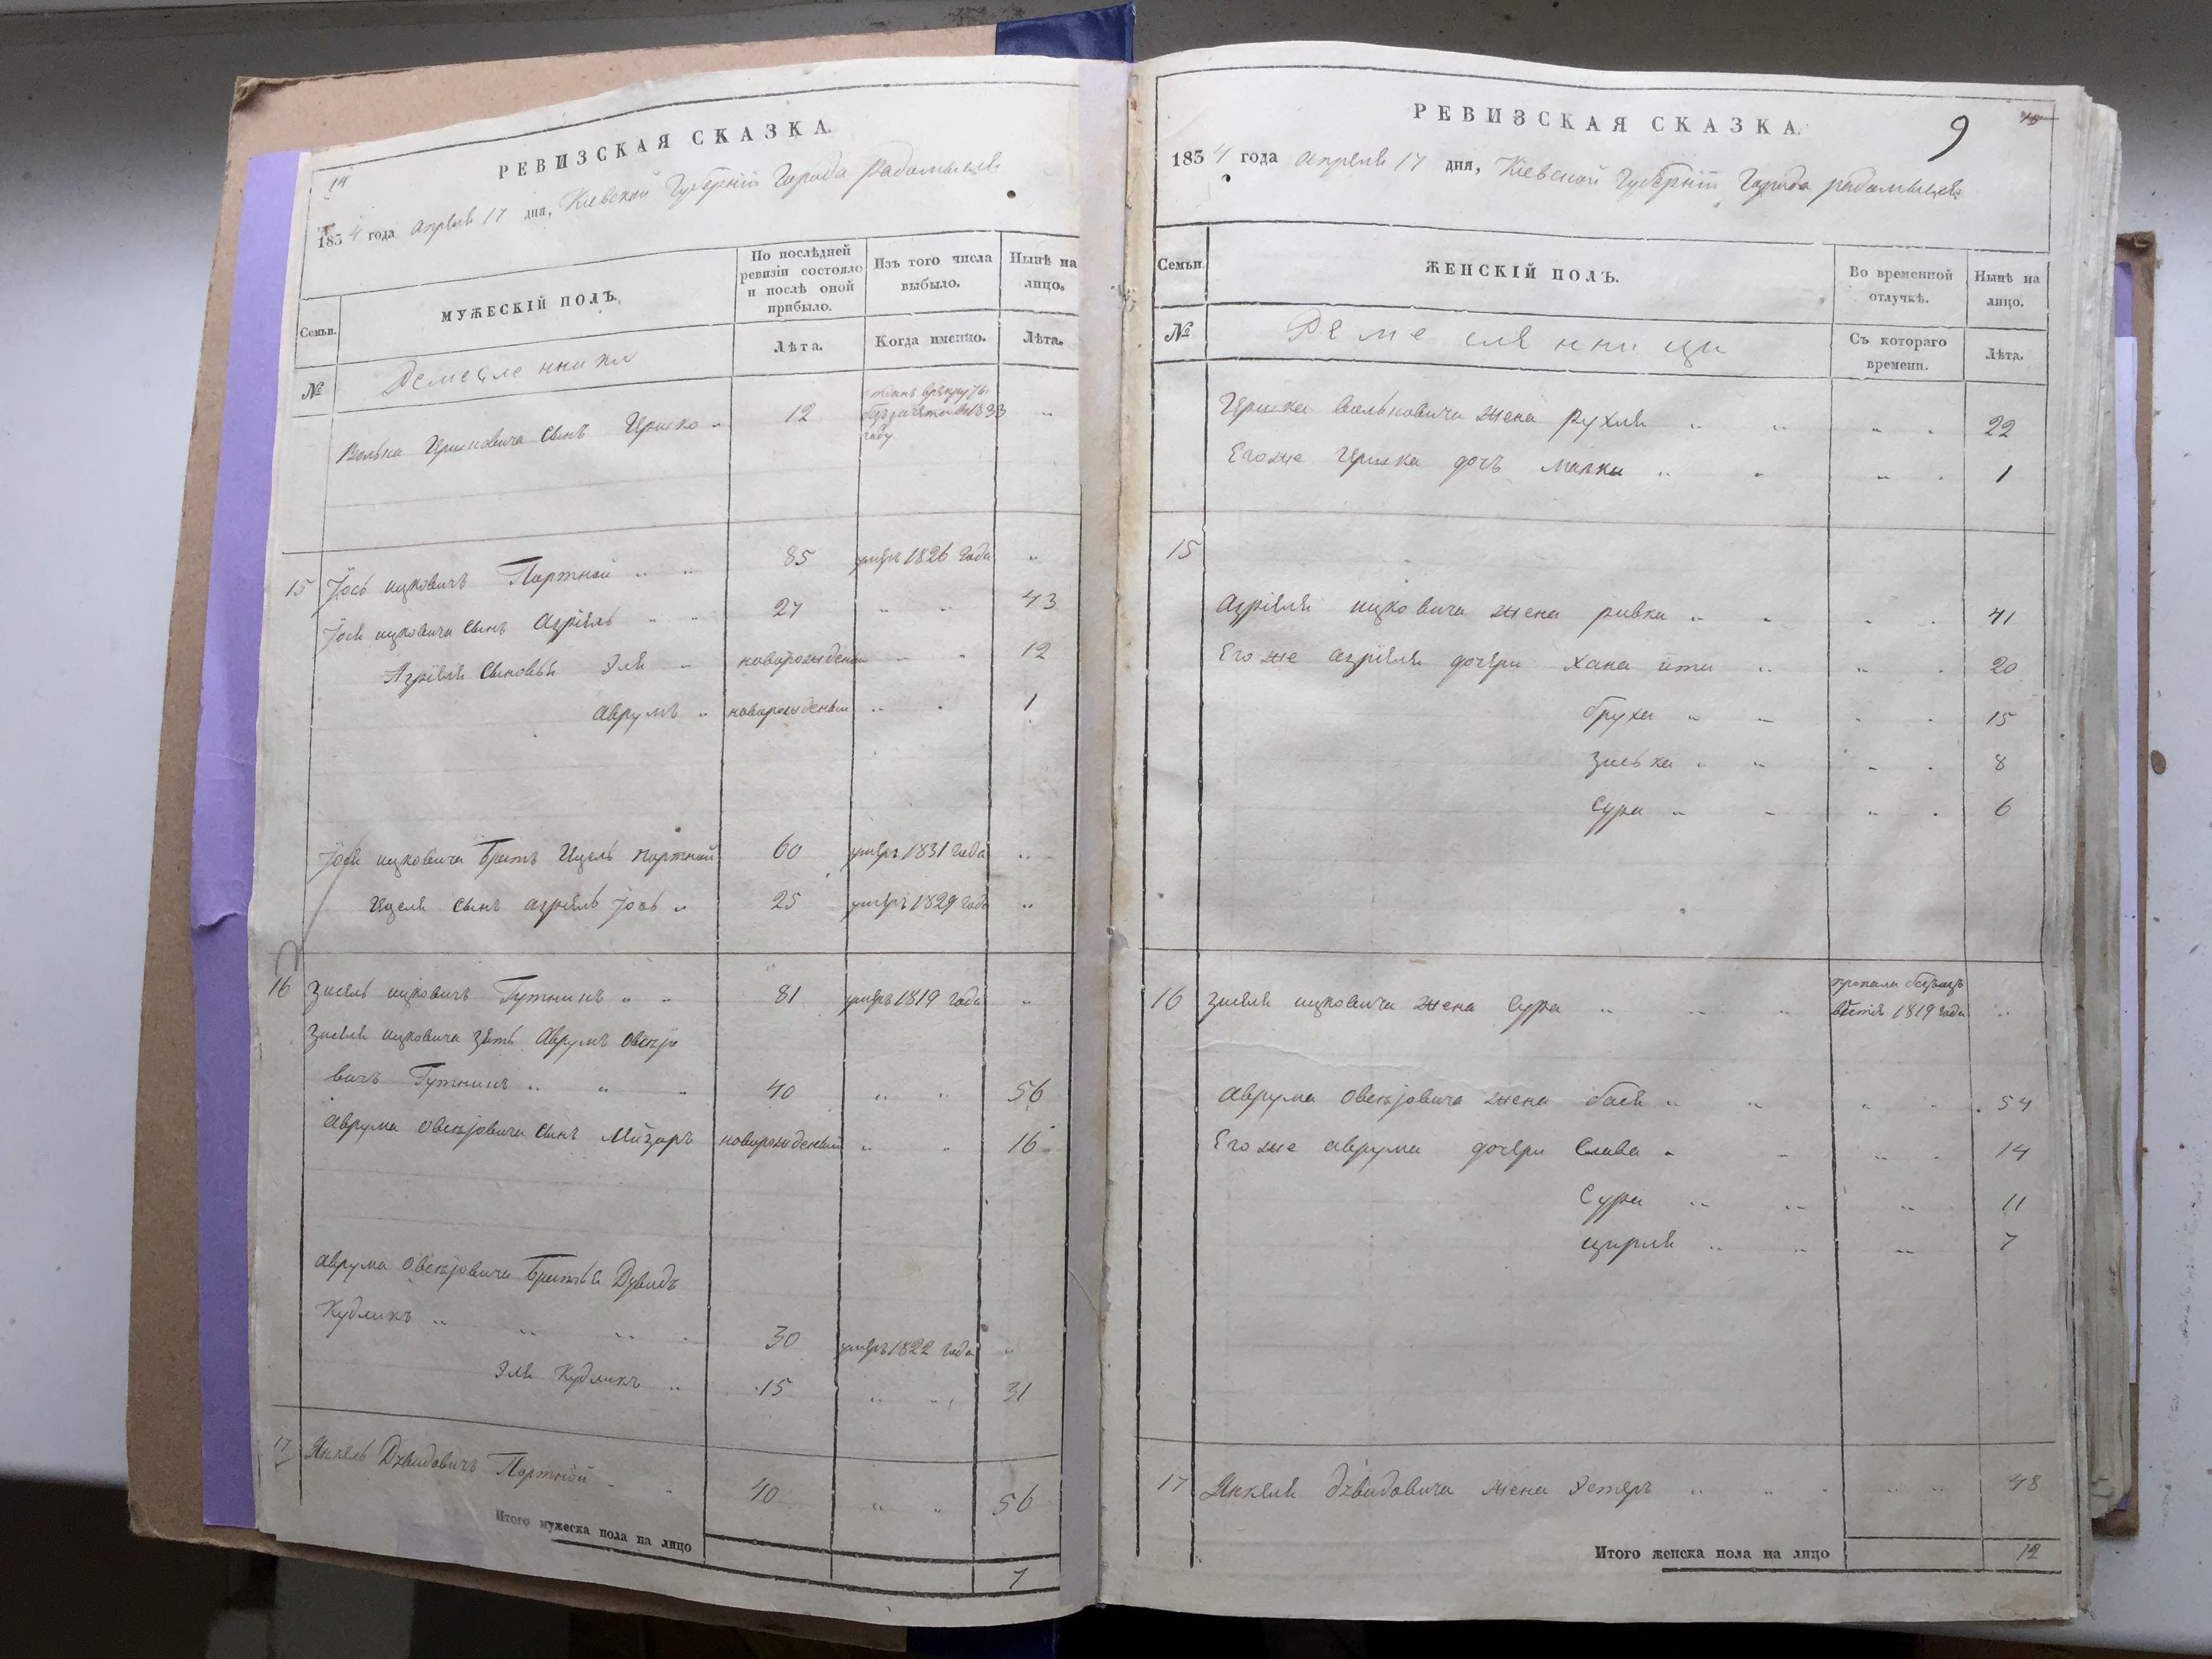 14
РЕВИЗСКАЯ СКАЗКА.
1834 года апреля 17 дня, Кіевской Губерніи Города радомысля
Семьи.
МУЖЕСКІЙ ПОЛЪ.
По послѣдней ревизіи состояло и послѣ оной прибыло.
Изъ того числа выбыло.
Нынѣ на лицо.
№
Ремесленники
Лѣта.
Когда именно.
Лѣта.
Волька Ицковича сынъ Ицко 12 1833 году
15 Іось ицковичъ Портной 85 умеръ 1826 года
Іося ицковича сынъ Азріель 27 43
Азріеля сыновья Эля новорожденый 12
аврумъ новорожденый 1
Іося ицковича братъ Ицель портной 60 умеръ 1831 года
Ицеля сынъ азріель Іось 25 умеръ 1829 года
16 Зисель ицковичъ Гутникъ 81 умеръ 1819 года
Зиселя ицковича зять Аврумъ Овсѣјо
вичъ Гутникъ 40 56
Аврума овсѣјовича сынъ Лейзоръ новорожденый 16
аврума овсѣјовича братья Дувидъ
Кудликъ 30 умеръ 1822 года
эля Кудликъ 15 31
17 Янкель Дувидовичъ Портной 40 56
Итого мужеска пола на лицо 7
9
РЕВИЗСКАЯ СКАЗКА.
1834 года апреля 17 дня, Кіевской Губерніи Города радомысля
Семьи.
ЖЕНСКІЙ ПОЛЪ.
Во временной отлучкѣ.
Нынѣ на лицо.
№
Ремеслянници
Съ котораго времени.
Лѣта.
Ицка вольковича жена Рухля 22
Егоже Ицка дочь малка 1
15
Азріеля ицковича жена ривка 41
Его же азріеля дочери хана ита 20
бруха 15
Зиська 8
Сура 6
16 Зиселя ицковича жена Сура пропала безъ вестія 1819 года
аврума овсѣјовича жена бася 54
Его же аврума дочери Слава 14
Сура 11
цирля 7
17 Янкеля дувидовича жена Эстеръ 48
Итого женска пола на лицо 12